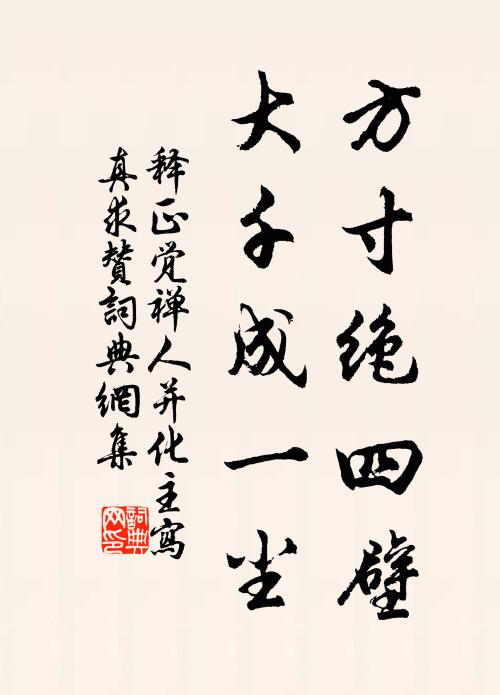 方寸绝四壁
大千成一尘
释正觉禅人并化主寫
真求赞詞典網集
詞典
网印